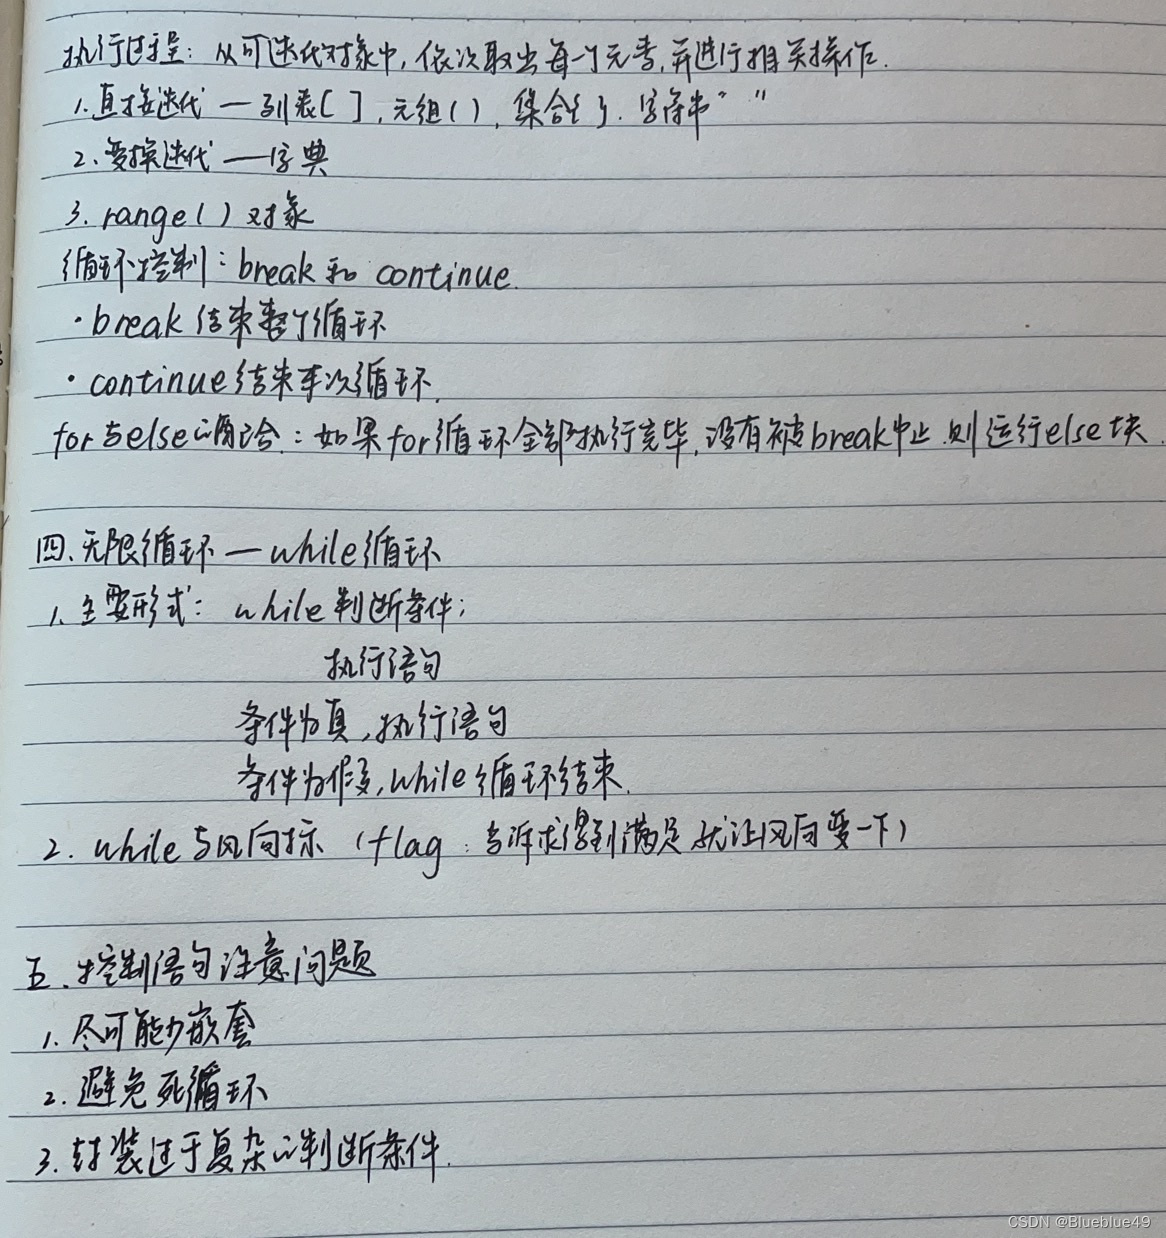 执行过程：从可迭代对象中,依次取出每一个元素,并进行相关操作.
1.直接迭代 — 列表[ ],元组( ),集合{ }.字符串“ ”
2.变换迭代 — 字典
3. range( ) 对象
循环控制：break 和 continue.
·break 结束整个循环
·continue 结束本次循环.
for与else的配合：如果for循环全部执行完毕,没有被break中止,则运行else块.
四、无限循环 — while循环
1.主要形式： while 判断条件;
执行语句
条件为真,执行语句
条件为假,while循环结束.
2. while与风向标（flag：当诉求得到满足就让风向变一下）
五.控制语句注意问题
1.尽可能少嵌套
2.避免死循环
3.封装过于复杂的判断条件.
CSDN @Blueblue49